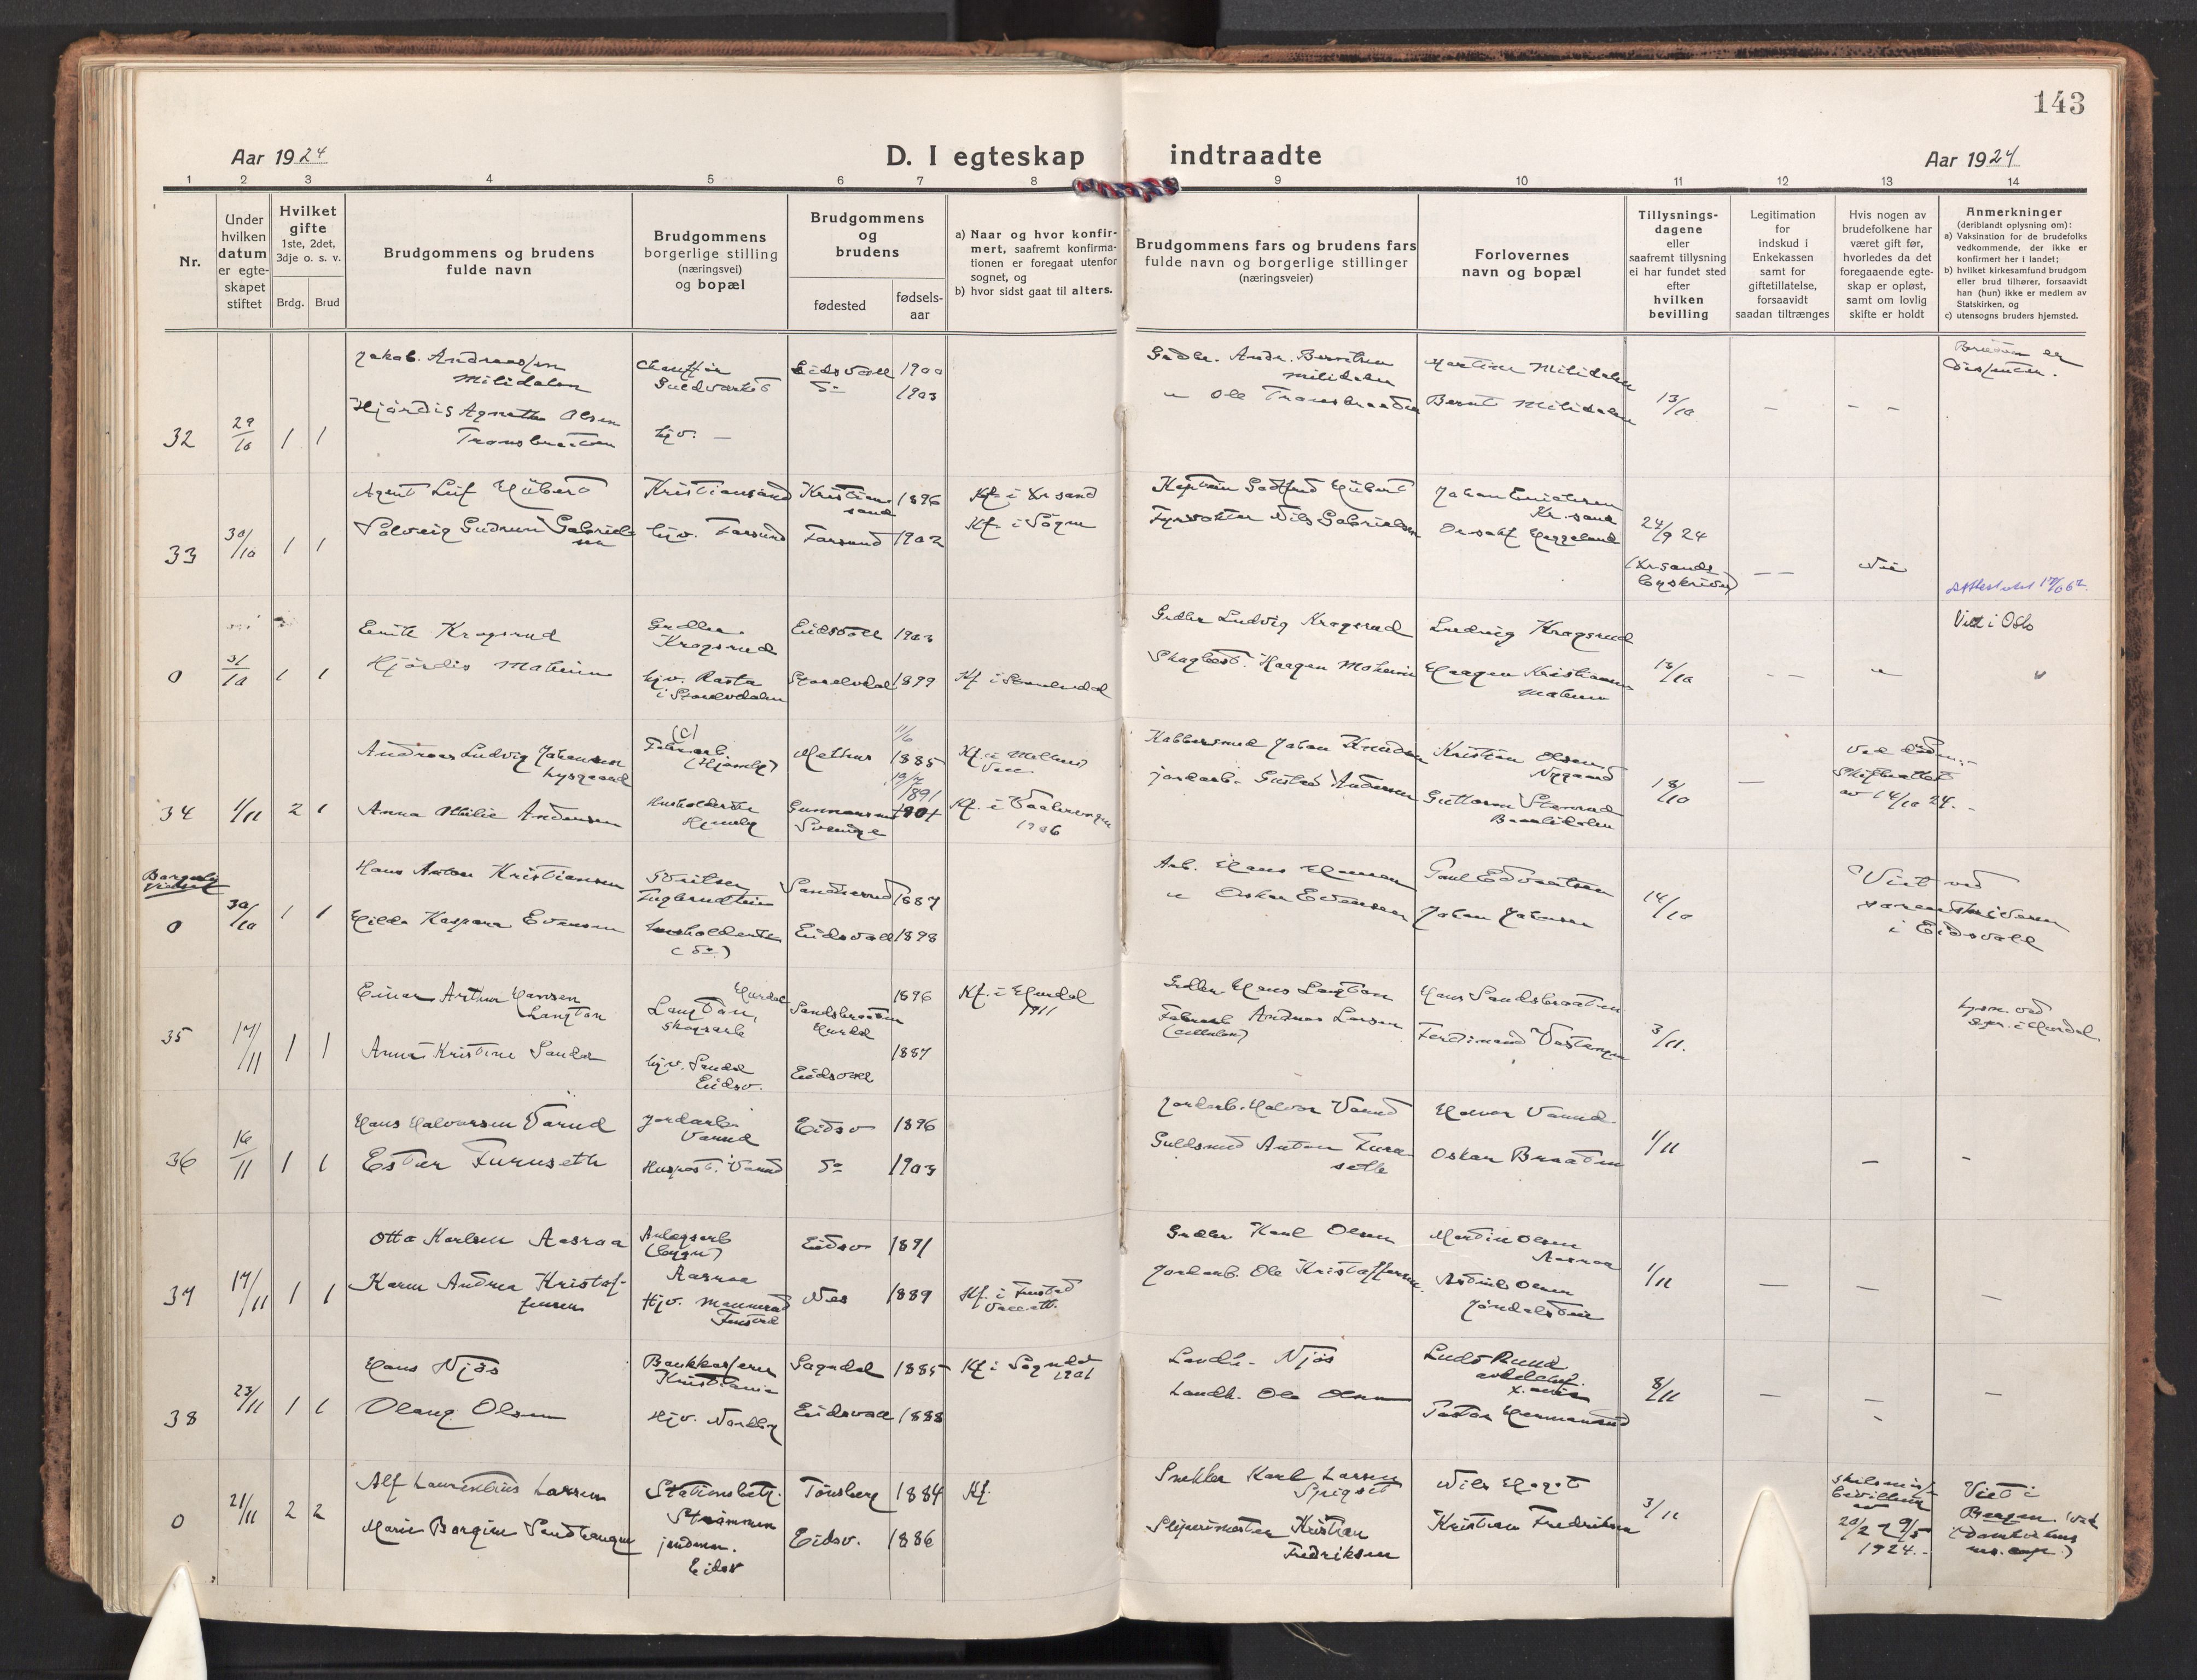 143
Aar 1924
D. I egteskap indtraadte
Aar 1924
1 2 3 4 5 6 7 8 9 10 11 12 13 14
Nr.
Under hvilken datum er egteskapet stiftet
Hvilket gifte
1ste, 2det, 3dje o. s. v.
Brdg. Brud
Brudgommens og brudens fulde navn
Brudgommens borgerlige stilling (næringsvei) og bopæl
Brudgommens og brudens
fødested
fødselsaar
a) Naar og hvor konfirmert, saafremt konfirmationen er foregaat utenfor sognet, og
b) hvor sidst gaat til alters.
Brudgommens fars og brudens fars fulde navn og borgerlige stillinger (næringsveier)
Forlovernes navn og bopæl
Tillysningsdagene eller saafremt tillysning ei har fundet sted efter hvilken bevilling
Legitimation for indskud i Enkekassen samt for giftetillatelse, forsaavidt saadan tiltrænges
Hvis nogen av brudefolkene har været gift før, hvorledes da det foregaaende egteskap er opløst, samt om lovlig skifte er holdt
Anmerkninger
(deriblandt oplysning om):
a) Vaksination for de brudefolks vedkommende, der ikke er konfirmert her i landet;
b) hvilket kirkesamfund brudgom eller brud tilhører, forsaavidt han (hun) ikke er medlem av Statskirken, og
c) utensogns bruders hjemsted.
32 29/10 1 1
Jakob Andreassen Milidalen
Chauffør Guldverket
Eidsvoll 1900
Hjördis Agnethe Olsen
hjv. —
do 1903
Gadbr. Andr. Berntsen Milidalen
" Ole
Martin Milidalen
Bernt Milidalen
13/10
— — —
33 30/10 1 1
Agent Leif Hübert
Kristiansand
Kristiansand 1896
Kf. i Kr sand
Solveig Gudrun Gabrielsen
hjv. Farsund
Farsund 1902
Kf. i Sögne
Kaptein Godtfred Hübert
Fyrvokter Nils Gabrielsen
Johan
Kr. sand
24/9 24
(Kr sands byskriver)
— — Nei
0 31/10 1 1
Emil Krogsrud
Grdbr. Krogsrud
Eidsvoll 1903
Hjördis Moheim
hjv. Rasta i Storelvdalen
Storelvdal 1899
Kf i Storelvdal
Grdbr Ludvig Krogsrud
Ludvig Krogsrud
Haagen Moheim
Haagen Kristiansen Moheim
13/10
— — "
Viet i Oslo
34 1/11 2 1
Andreas Ludvig Johansen Lysgaard
(c) Fabrarb.
11/6 1885
Anna Otilie Andersen
Husholderske
Sverige
10/7 1891
Kf. i Vaalerengen 1906
Kobbersmed Johan Knudsen
jordarb. Gustav Andersen
Kristian Olsen Nygaard
Guttorm Stensrud
18/10
—
ved döden.
Skifteattest av 14/10 24.
Borgerlig viet
0 30/10 1 1
Hans Anton Kristiansen
Sandnesund 1887
Hilda Kaspara Evensen
husholderske (do)
Eidsvoll 1898
Arb. Hans Hansen
" Oskar Evensen
Paul Edvartsen
Johan Johnsen
14/10
Viet ved sorenskriveren i Eidsvold
35 17/11 1 1
Einar Arthur Hansen Langton
Langton, Hurdal skogsarb
Sandsbraaten Hurdal 1896
Kf. i Hurdal 1911
Anna Kristine Sander
hjv. Eidsv.
Eidsvoll 1887
Grdbr Hans Langton
Fabrarb Andreas Larsen (cellulose)
Hans Sandsbraaten
Ferdinand
3/11.
lysn. ved spr. i Hurdal.
36 16/11 1 1
Hans Halvorsen Varud
Jordarb. Varud
Eidsv 1896
Ester Furuseth
Varud
do 1903
Jordarb. Halvor Varud
Guldsmed Anton Furuseth
Halvor Varud
Oskar Braaten
1/11
— —
37 17/11 1 1
Otto Karlsen Aasraa
Anlægsarb (bygn) Aasraa
Eidsv 1891
Karen Andrea Kristoffersen
Hjv. Fenstad
Nes 1889
Kf. i Fenstad
Grdbr. Karl Olsen
Jordarb. Ole Kristoffersen
Martin Olsen Aasraa
Olsen
1/11
— — —
38 23/11 1 1
Hans Njös
Bankkasserer Kristiania
Sogndal 1885
Kf i Sogndal 1901
Olaug Olsen
Hjv. Nordby
Eidsvoll 1888
Njös
Landh. Ole Olsen
Pastor Hermanrud
8/11
— — —
0 21/11 2 2
Alf Laurentius Larsen
Stationsbetj. Strömmen
Tönsberg 1884
Kf.
Marie Borgine Sandhaugen
jordmor. Eidsv
Eidsv. 1886
Snekker Karl Larsen
Slipermester Kristian Fredriksen
Kristian Fredriksen
3/11
Skilsmissebevilling av 20/2 & 9/5 1924.
Viet i Bergen.